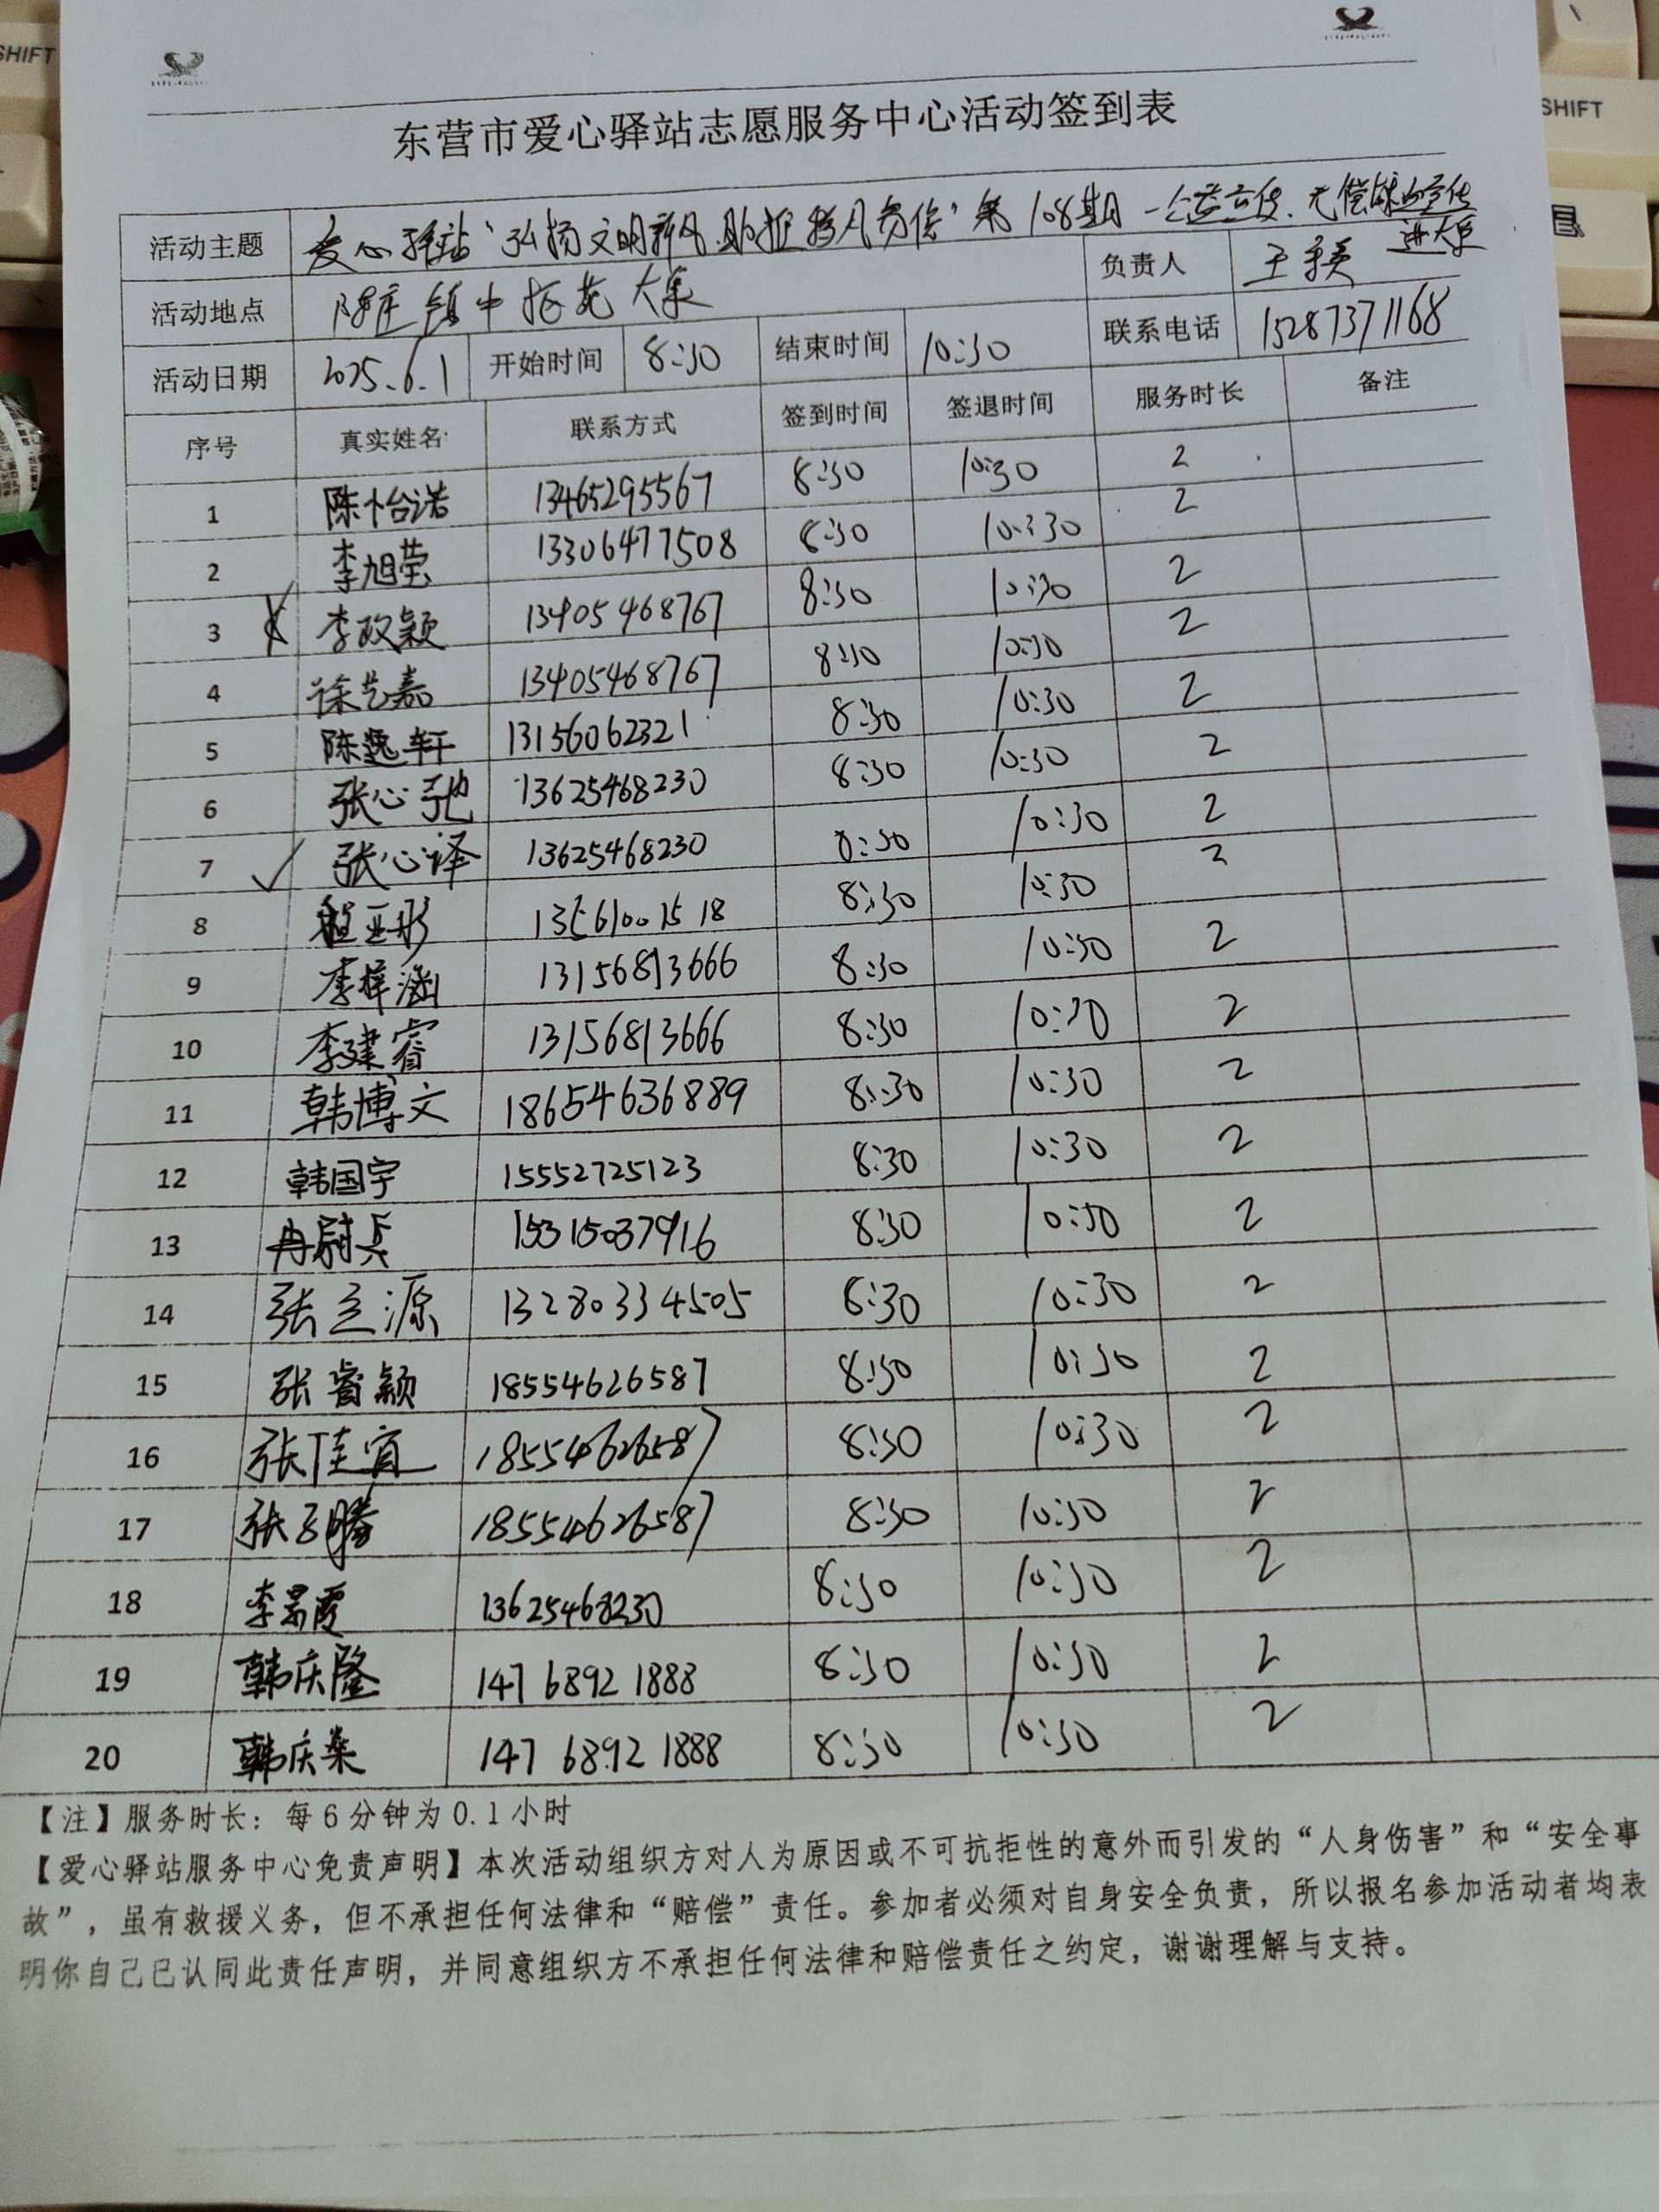 东营市爱心驿站志愿服务中心活动签到表
活动主题 爱心驿站“弘扬文明新风 助推移风易俗”第108期—公益宣传、无偿献血宣传
进大集
活动地点 陈庄镇中 大集 负责人 王
活动日期 2025.6.1 开始时间 8:30 结束时间 10:30 联系电话 15287371168
序号 真实姓名 联系方式 签到时间 签退时间 服务时长 备注
1 陈怡诺 13465295567 8:30 10:30 2
2 李旭莹 13306477508 8:30 10:30 2
3 李政颖 13405468767 8:30 10:30 2
4 徐艺嘉 13405468767 8:30 10:30 2
5 陈逸轩 13156062321 8:30 10:30 2
6 张心弛 13625468230 8:30 10:30 2
7 ✓ 张心译 13625468230 8:30 10:30 2
8 程亚彤 13561001518 8:30 10:30 2
9 李梓涵 13156813666 8:30 10:30 2
10 李建睿 13156813666 8:30 10:30 2
11 韩博文 18654636889 8:30 10:30 2
12 韩国宇 15552725123 8:30 10:30 2
13 冉尉兵 15315037916 8:30 10:30 2
14 张立源 13280334505 8:30 10:30 2
15 张睿颖 18554626587 8:30 10:30 2
16 张佳宜 18554626587 8:30 10:30 2
17 张子腾 18554626587 8:30 10:30 2
18 李景霞 13625468230 8:30 10:30 2
19 韩庆隆 147 6892 1888 8:30 10:30 2
20 韩庆燊 147 6892 1888 8:30 10:30 2
【注】服务时长：每6分钟为0.1小时
【爱心驿站服务中心免责声明】本次活动组织方对人为原因或不可抗拒性的意外而引发的“人身伤害”和“安全事
故”，虽有救援义务，但不承担任何法律和“赔偿”责任。参加者必须对自身安全负责，所以报名参加活动者均表
明你自己已认同此责任声明，并同意组织方不承担任何法律和赔偿责任之约定，谢谢理解与支持。
SHIFT
SHIFT